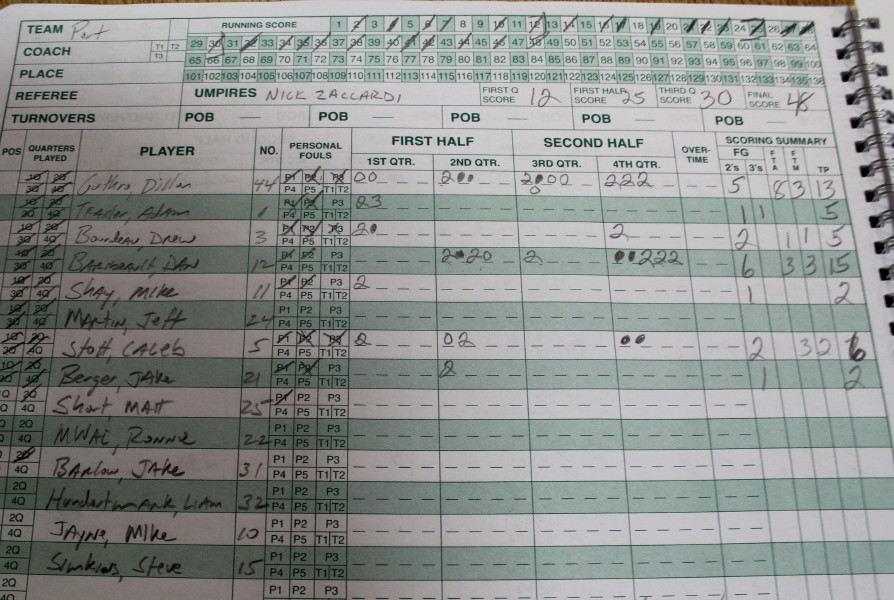 TEAM Port RUNNING SCORE 1 2 3 4 5 6 7 8 9 10 11 12 13 14 15 16 17 18 19 20 21 22 23 24 25 26 27 28
COACH T1 T2 29 30 31 32 33 34 35 36 37 38 39 40 41 42 43 44 45 46 47 48 49 50 51 52 53 54 55 56 57 58 59 60 61 62 63 64
T3 65 66 67 68 69 70 71 72 73 74 75 76 77 78 79 80 81 82 83 84 85 86 87 88 89 90 91 92 93 94 95 96 97 98 99 100
PLACE 101 102 103 104 105 106 107 108 109 110 111 112 113 114 115 116 117 118 119 120 121 122 123 124 125 126 127 128 129 130 131 132 133 134 135 136
REFEREE UMPIRES NICK ZACCARDI FIRST Q SCORE 12 FIRST HALF SCORE 25 THIRD Q SCORE 30 FINAL SCORE 48
TURNOVERS POB — POB — POB — POB — POB —
POS QUARTERS PLAYED PLAYER NO. PERSONAL FOULS FIRST HALF SECOND HALF OVER-TIME SCORING SUMMARY
1ST QTR. 2ND QTR. 3RD QTR. 4TH QTR. FG 2's 3's FTA FTM TP
1Q 2Q Guthro, Dillon 44 P1 P2 P3 00 2 2 00 222 5 8 3 13
3Q 4Q P4 P5 T1 T2 0
1Q 2Q Adam 1 P1 P2 P3 23 1 1 5
3Q 4Q P4 P5 T1 T2
1Q 2Q Drew 3 P1 P2 P3 2 2 2 1 1 5
3Q 4Q P4 P5 T1 T2
1Q 2Q DAN 12 P1 P2 P3 2 20 2 222 6 3 3 15
3Q 4Q P4 P5 T1 T2
1Q 2Q Shay, Mike 11 P1 P2 P3 2 1 2
3Q 4Q P4 P5 T1 T2
1Q 2Q Martin, Jeff 24 P1 P2 P3
3Q 4Q P4 P5 T1 T2
1Q 2Q Stott, CALEB 5 P1 P2 P3 2 02 2 3 2 6
3Q 4Q P4 P5 T1 T2
1Q 2Q Berger, JAke 21 P1 P2 P3 2 1 2
3Q 4Q P4 P5 T1 T2
Q 2Q Short, MATT 25 P1 P2 P3
Q 4Q P4 P5 T1 T2
Q 2Q MWAI, Ronnie 22 P1 P2 P3
Q 4Q P4 P5 T1 T2
2Q BARlow, JAke 31 P1 P2 P3
4Q P4 P5 T1 T2
2Q Liam 32 P1 P2 P3
4Q P4 P5 T1 T2
2Q JAyne, Mike 10 P1 P2 P3
4Q P4 P5 T1 T2
2Q Simkins, Steve 15 P1 P2 P3
4Q P4 P5 T1 T2
2Q P1 P2 P3